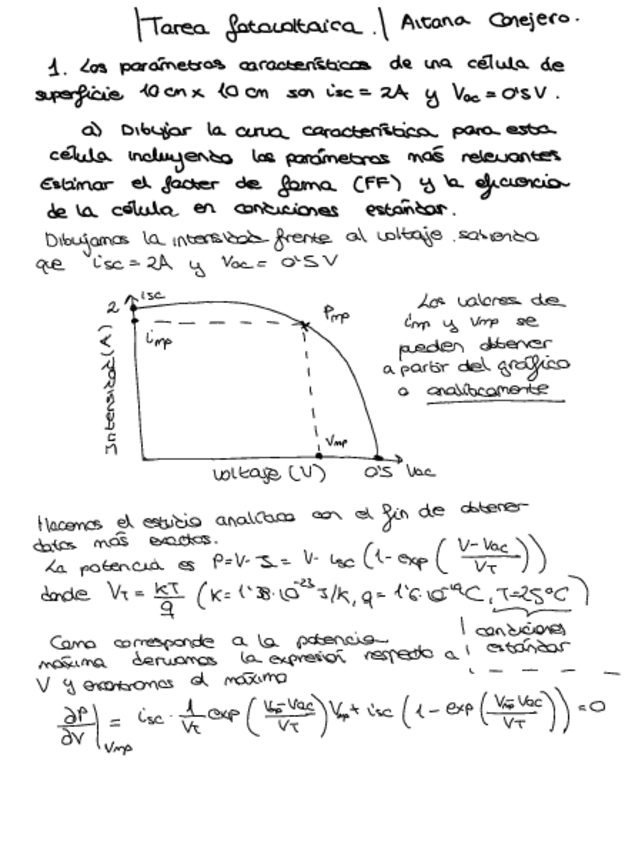 Tarea fotovoltaica. Aitana Conejero.
1. Los parámetros característicos de una célula de
superficie 10 cm x 10 cm son isc = 2A y Voc = 0'5 V.
a) Dibujar la curva característica para esta
célula incluyendo los parámetros más relevantes
Estimar el factor de forma (FF) y la eficiencia
de la célula en condiciones estándar.
Dibujamos la intensidad frente al voltaje sabiendo
que isc = 2A y Voc = 0'5 V
isc
2
imp
Pmp
Intensidad (A)
Vmp
voltaje (V) 0'5 Voc
Los valores de
imp y Vmp se
pueden obtener
a partir del gráfico
o analíticamente
Hacemos el estudio analítico con el fin de obtener
datos más exactos.
La potencia es P=V·I = V·isc (1-exp((V-Voc)/VT))
donde VT = kT/q (K=1'38·10^-23 J/K, q=1'6·10^-19C, T=25ºC)
condiciones
estándar
Como corresponde a la potencia
máxima derivamos la expresión respecto a
V y encontramos el máximo
∂P/∂V|Vmp = isc·1/VT exp((Vmp-Voc)/VT)Vmp + isc (1-exp((Vmp-Voc)/VT)) = 0